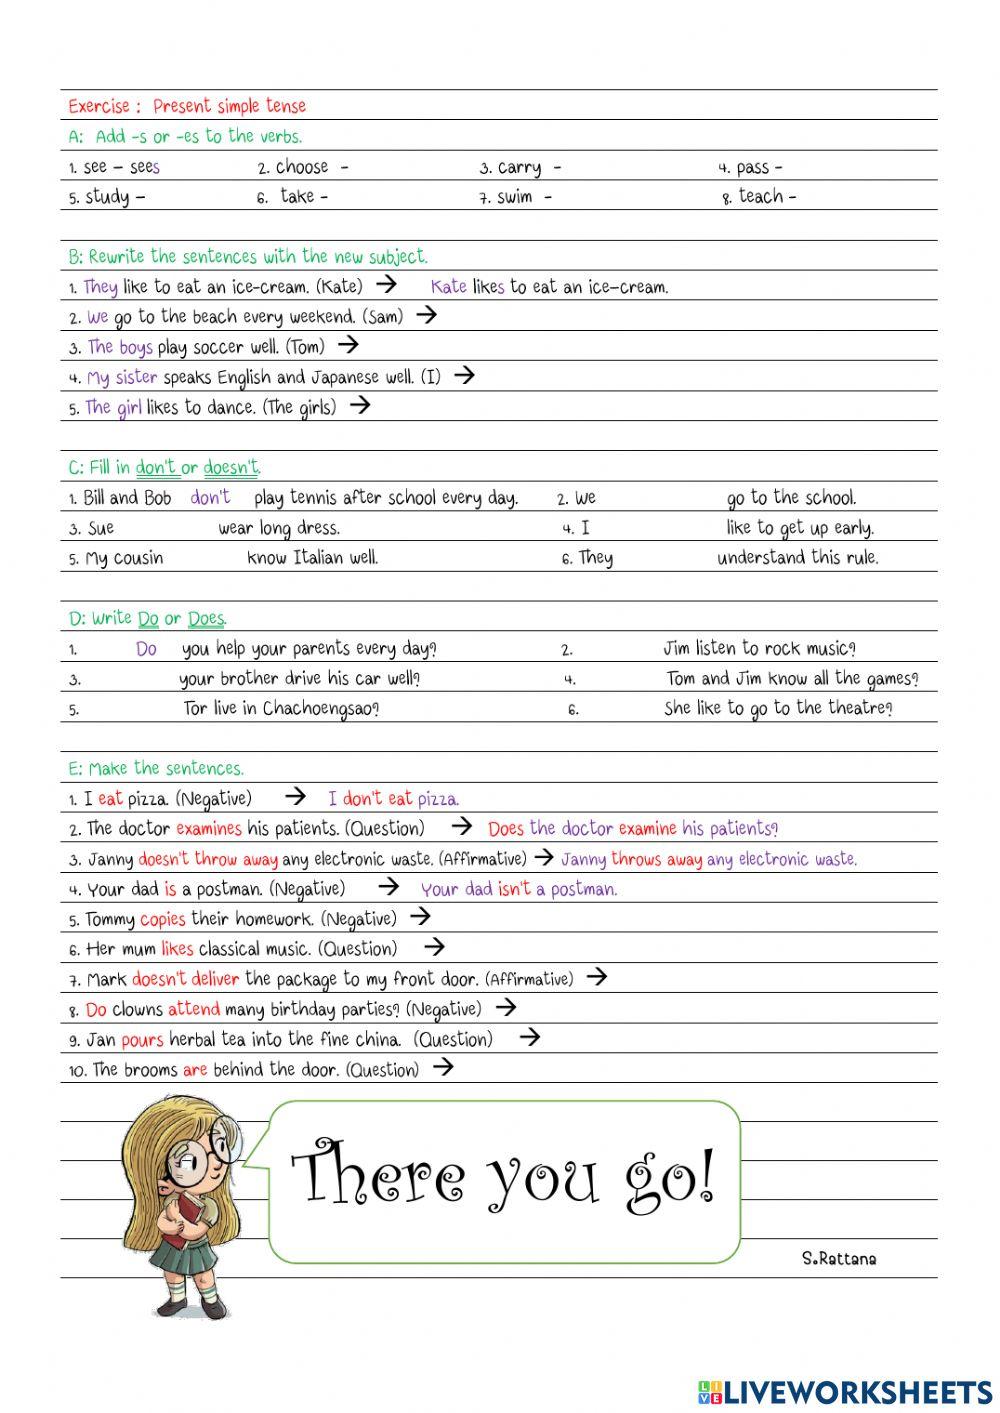 Exercise : Present simple tense
A: Add -s or -es to the verbs.
1. see – sees 2. choose - 3. carry - 4. pass -
5. study – 6. take - 7. swim - 8. teach -
B: Rewrite the sentences with the new subject.
1. They like to eat an ice-cream. (Kate) → Kate likes to eat an ice-cream.
2. We go to the beach every weekend. (Sam) →
3. The boys play soccer well. (Tom) →
4. My sister speaks English and Japanese well. (I) →
5. The girl likes to dance. (The girls) →
C: Fill in don't or doesn't.
1. Bill and Bob don't play tennis after school every day. 2. We go to the school.
3. Sue wear long dress. 4. I like to get up early.
5. My cousin know Italian well. 6. They understand this rule.
D: Write Do or Does.
1. Do you help your parents every day? 2. Jim listen to rock music?
3. your brother drive his car well? 4. Tom and Jim know all the games?
5. Tor live in Chachoengsao? 6. She like to go to the theatre?
E: Make the sentences.
1. I eat pizza. (Negative) → I don't eat pizza.
2. The doctor examines his patients. (Question) → Does the doctor examine his patients?
3. Janny doesn't throw away any electronic waste. (Affirmative) → Janny throws away any electronic waste.
4. Your dad is a postman. (Negative) → Your dad isn't a postman.
5. Tommy copies their homework. (Negative) →
6. Her mum likes classical music. (Question) →
7. Mark doesn't deliver the package to my front door. (Affirmative) →
8. Do clowns attend many birthday parties? (Negative) →
9. Jan pours herbal tea into the fine china. (Question) →
10. The brooms are behind the door. (Question) →
There you go!
S.Rattana
LIVE LIVEWORKSHEETS